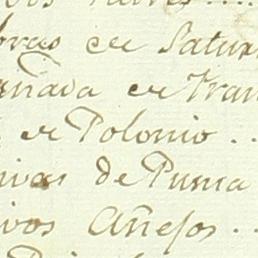 bras en Satur
añada en Fran
en Polonio . .
ivas de Puma
ivos Añejos . . .